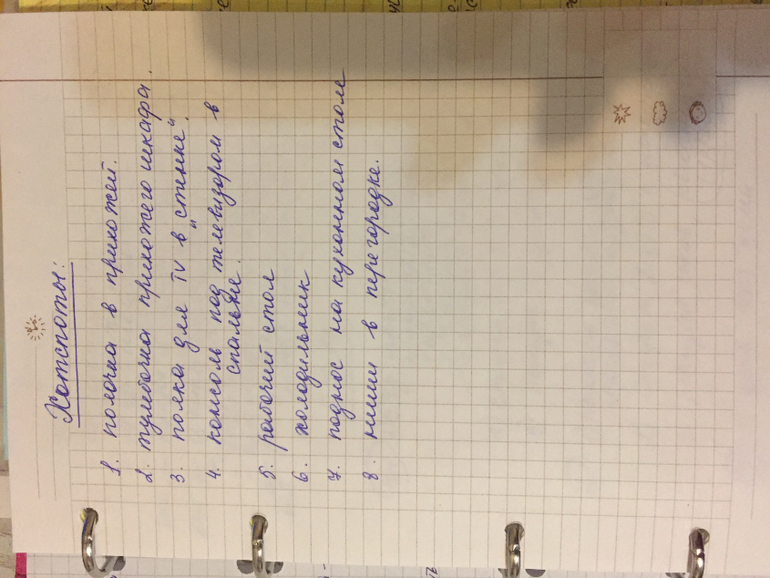 Хотспоты:
1. полочка в прихожей.
2. тумбочка прихожего шкафа.
3. полка для TV в "стенке".
4. консоль под телевизором в
спальне.
5. рабочий стол
6. холодильник
7. поднос на кухонном столе
8. ниши в перегородке.